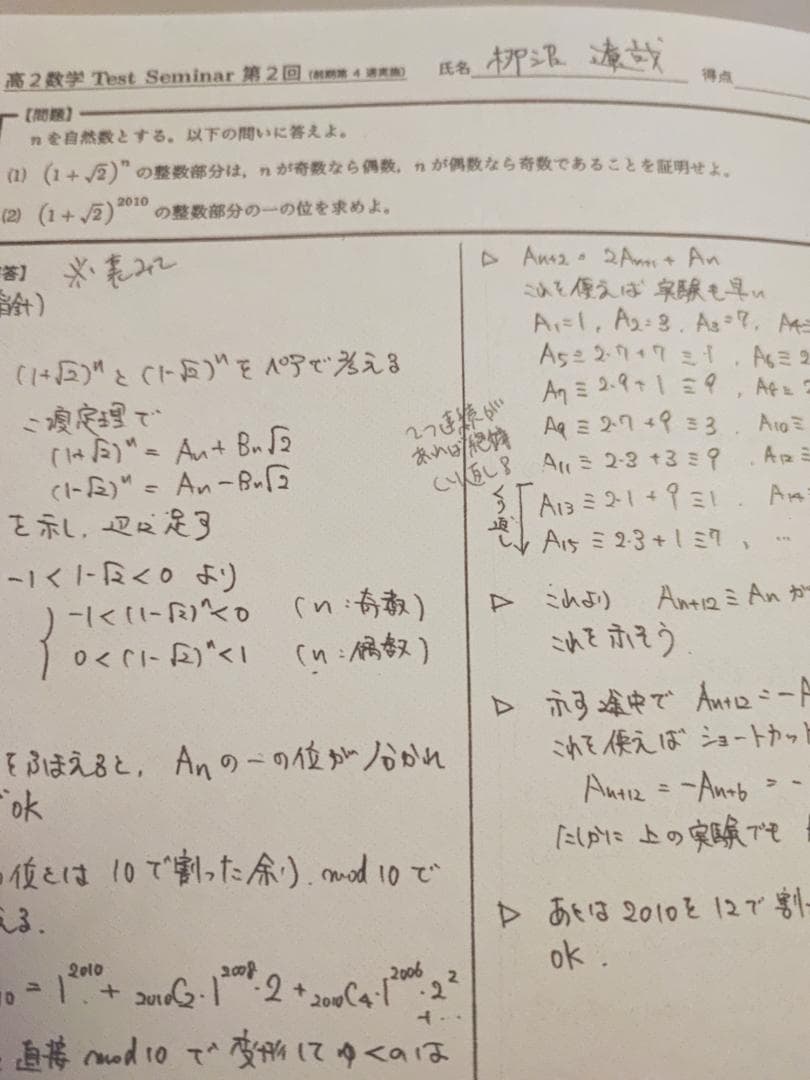 高2数学 Test Seminar 第2回 (前期第4週実施) 氏名 柳沼 遼哉 得点
【問題】
nを自然数とする。以下の問いに答えよ。
(1) (1+√2)^n の整数部分は，nが奇数なら偶数，nが偶数なら奇数であることを証明せよ。
(2) (1+√2)^2010 の整数部分の一の位を求めよ。
答】
※裏みて
指針)
(1+√2)^n と (1-√2)^n をペアで考える
二項定理で
(1+√2)^n = An + Bn√2
(1-√2)^n = An - Bn√2
を示し、辺々足す
-1 < 1-√2 < 0 より
-1 < (1-√2)^n < 0 (n:奇数)
0 < (1-√2)^n < 1 (n:偶数)
をふまえると、Anの一の位が分かれ
ok
の位とは 10で割った余り. mod 10 で
える.
10 = 1^2010 + 2010C2・1^2008・2 + 2010C4・1^2006・2^2
+…
直接 mod 10 で変形してゆくのは
▷ An+2 = 2An+1 + An
これを使えば実験も早い
A1=1, A2=3, A3=7, A4≡
A5≡2・7+7≡1, A6≡2
A7≡2・9+1≡9, A8≡2
A9≡2・7+9≡3 A10≡
A11≡2・3+3≡9 A12≡
A13≡2・1+9≡1. A14≡
A15≡2・3+1≡7, …
2つ連続が
あれば絶対
くり返し
くり返し
▷ これより An+12≡An が
これを示そう.
▷ 示す途中で An+12 = -A
これを使えば ショートカット
An+12 = -An+6 = -
たしかに 上の実験でも
▷ あとは 2010を 12で割
ok.